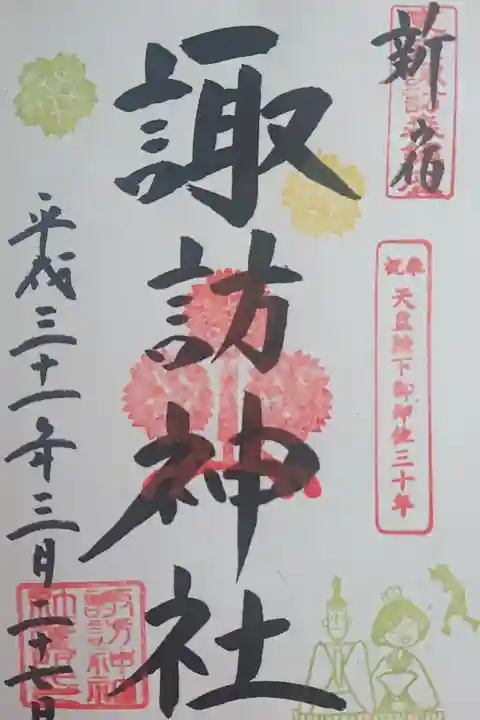 新宿
奉祝 天皇陛下御即位三十年
諏訪神社
平成三十一年三月二十七日